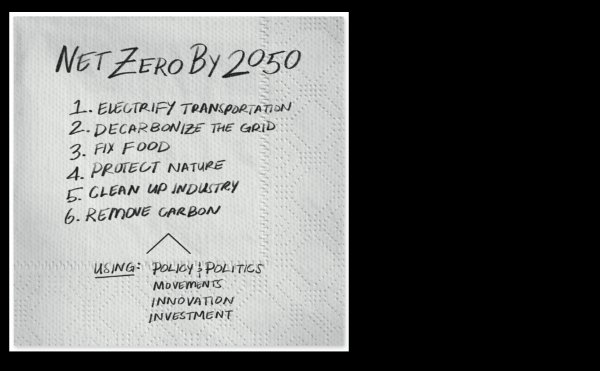 NET ZERO BY 2050
1. ELECTRIFY TRANSPORTATION
2. DECARBONIZE THE GRID
3. FIX FOOD
4. PROTECT NATURE
5. CLEAN UP INDUSTRY
6. REMOVE CARBON
USING: POLICY & POLITICS
MOVEMENTS
INNOVATION
INVESTMENT